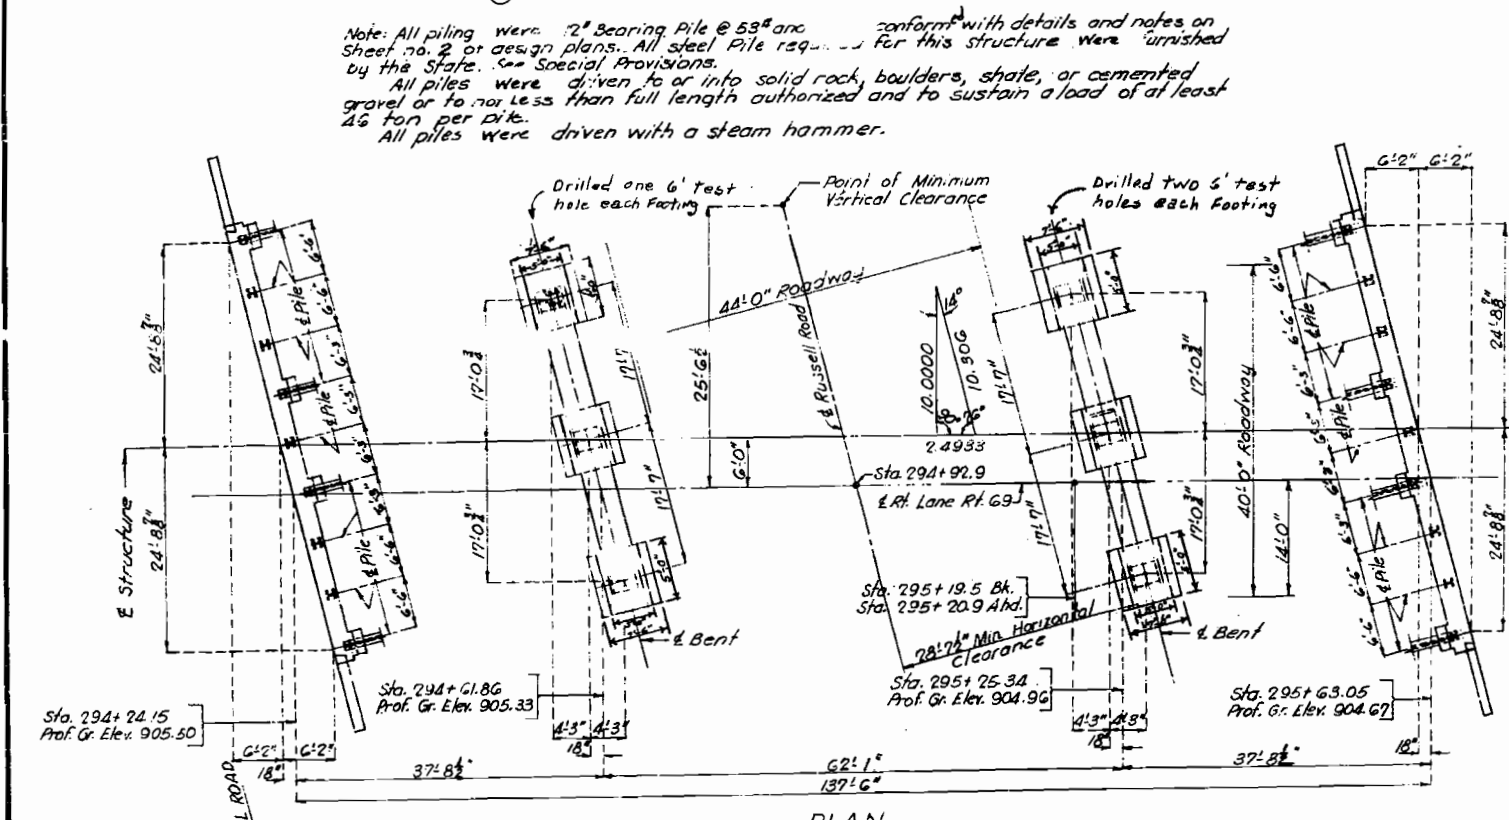 Note: All piling were 12" Bearing Pile @ 53# and conform'd with details and notes on
Sheet no. 2 of design plans. All steel Pile for this structure were furnished
by the State. See Special Provisions.
All piles were driven to or into solid rock, boulders, shale, or cemented
gravel or to not less than full length authorized and to sustain a load of at least
46 ton per pile.
All piles were driven with a steam hammer.
Drilled one 6' test
hole each Footing
Point of Minimum
Vertical Clearance
Drilled two 6' test
holes each Footing
6'-2" 6'-2"
7'-6"
5'-0"
7'-6"
5'-0"
5'-0"
44'-0" Roadway
℄ Russell Road
14°
10.0000
10.306
76°
2.4933
24'-8⅞"
24'-8⅞"
6'-6"
6'-6"
6'-3"
6'-3"
6'-3"
6'-3"
6'-6"
6'-6"
℄ Pile
℄ Pile
℄ Pile
17'-0¾"
17'-0¾"
17'-7"
17'-7"
25'-6½"
6'-0"
17'-7"
17'-7"
17'-0¾"
17'-0¾"
40'-0" Roadway
14'-0"
6'-6"
6'-6"
6'-3"
6'-3"
6'-3"
6'-3"
6'-6"
6'-6"
℄ Pile
℄ Pile
℄ Pile
24'-8⅞"
24'-8⅞"
℄ Structure
Sta. 294+92.9
℄ Rt. Lane Rt. 69
5'-0"
5'-0"
Sta. 295+19.5 Bk.
Sta. 295+20.9 Ahd.
28'-7½" Min Horizontal
Clearance
℄ Bent
℄ Bent
Sta. 294+24.15
Prof. Gr. Elev. 905.50
Sta. 294+61.86
Prof. Gr. Elev. 905.33
Sta. 295+25.34
Prof. Gr. Elev. 904.96
Sta. 295+63.05
Prof. Gr. Elev. 904.67
6'-2" 6'-2"
18"
4'-3" 4'-3"
18"
4'-3" 4'-3"
18"
18"
37'-8½"
62'-1"
37'-8½"
137'-6"
L ROAD
PLAN